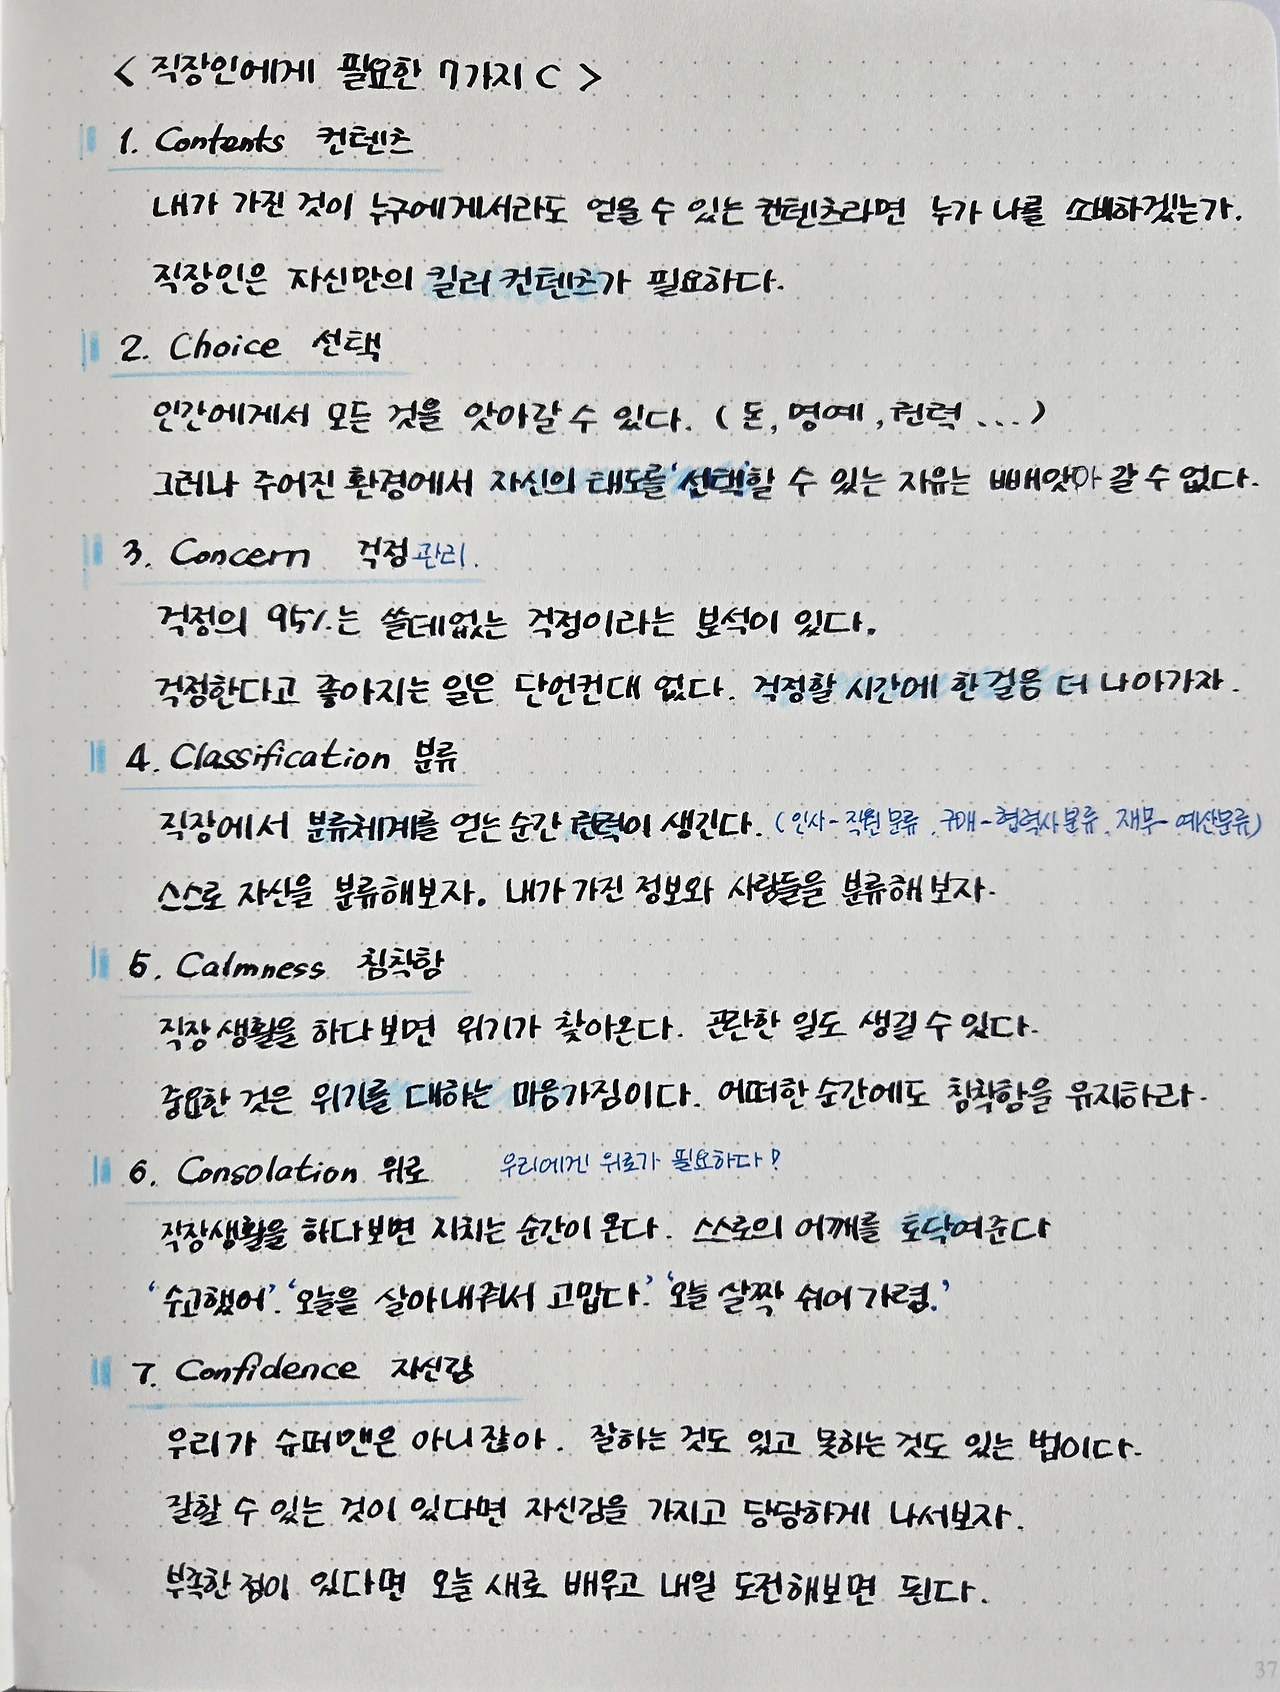 < 직장인에게 필요한 7가지 C >
1. Contents 컨텐츠
내가 가진 것이 누구에게서라도 얻을 수 있는 컨텐츠라면 누가 나를 소비하겠는가.
직장인은 자신만의 킬러 컨텐츠가 필요하다.
2. Choice 선택
인간에게서 모든 것을 앗아갈 수 있다. ( 돈, 명예, 권력 ... )
그러나 주어진 환경에서 자신의 태도를 '선택'할 수 있는 자유는 빼앗아 갈 수 없다.
3. Concern 걱정관리.
걱정의 95%는 쓸데없는 걱정이라는 분석이 있다.
걱정한다고 좋아지는 일은 단언컨대 없다. 걱정할 시간에 한 걸음 더 나아가자.
4. Classification 분류
직장에서 분류체계를 얻는 순간 권력이 생긴다. (인사-직원 분류, 구매-협력사 분류, 재무-예산분류)
스스로 자신을 분류해보자. 내가 가진 정보와 사람들을 분류해 보자.
5. Calmness 침착함
직장 생활을 하다 보면 위기가 찾아온다. 곤란한 일도 생길 수 있다.
중요한 것은 위기를 대하는 마음가짐이다. 어떠한 순간에도 침착함을 유지하라.
6. Consolation 위로 우리에겐 위로가 필요하다!
직장생활을 하다보면 지치는 순간이 온다. 스스로의 어깨를 토닥여준다
'수고했어'. '오늘을 살아내줘서 고맙다.' '오늘 살짝 쉬어 가렴.'
7. Confidence 자신감
우리가 슈퍼맨은 아니잖아. 잘하는 것도 있고 못하는 것도 있는 법이다.
잘할 수 있는 것이 있다면 자신감을 가지고 당당하게 나서보자.
부족한 점이 있다면 오늘 새로 배우고 내일 도전해보면 된다.
37